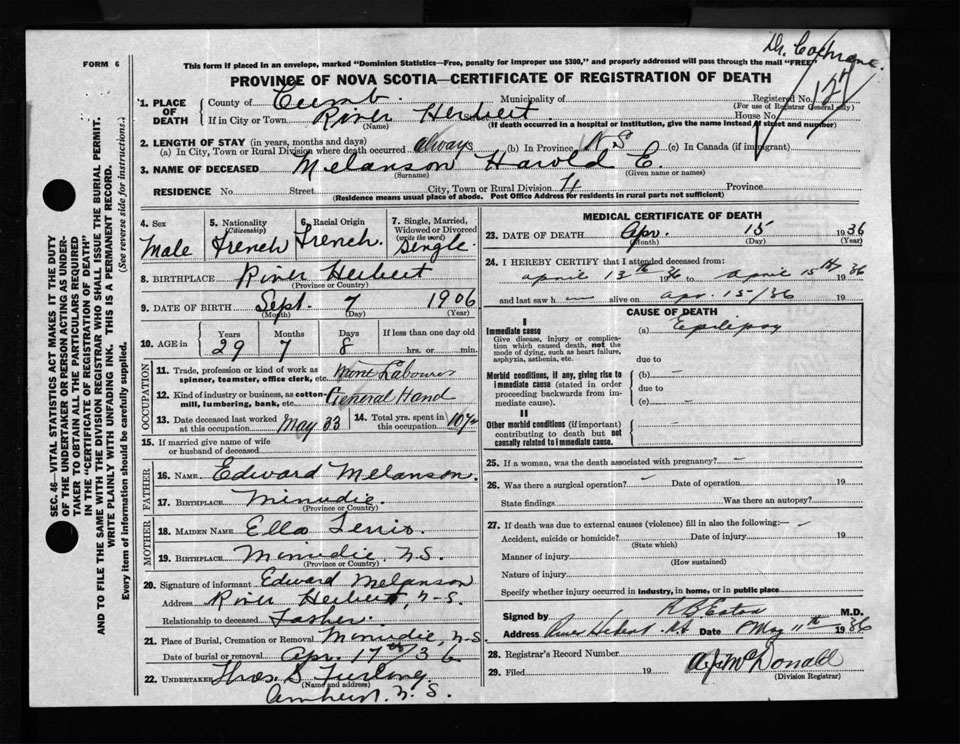 Dr. Cochrane.
FORM 6
This form if placed in an envelope, marked "Dominion Statistics—Free, penalty for improper use $300," and properly addressed will pass through the mail "FREE"
PROVINCE OF NOVA SCOTIA—CERTIFICATE OF REGISTRATION OF DEATH
1. PLACE OF DEATH
County of Cumb. Municipality of Registered No. 127
(For use of Registrar General only)
If in City or Town River Herbert House No.
(Name) (If death occurred in a hospital or institution, give the name instead of street and number)
2. LENGTH OF STAY (in years, months and days)
(a) In City, Town or Rural Division where death occurred always (b) In Province N.S (c) In Canada (if immigrant)
3. NAME OF DECEASED Melanson Harold E.
(Surname) (Given name or names)
RESIDENCE No. Street City, Town or Rural Division Province
(Residence means usual place of abode. Post Office Address for residents in rural parts not sufficient)
4. Sex Male
5. Nationality (Citizenship) French
6. Racial Origin French.
7. Single, Married, Widowed or Divorced (write the word) Single.
8. BIRTHPLACE River Herbert
(Province or Country)
9. DATE OF BIRTH Sept. 7 1906
(Month) (Day) (Year)
10. AGE in Years 29 Months 7 Days 8 If less than one day old hrs. or min.
OCCUPATION
11. Trade, profession or kind of work as spinner, teamster, office clerk, etc. Labourer
12. Kind of industry or business, as cotton-mill, lumbering, bank, etc. General Hand
13. Date deceased last worked at this occupation May 33
14. Total yrs. spent in this occupation 10
15. If married give name of wife or husband of deceased
FATHER
16. NAME Edward Melanson.
17. BIRTHPLACE Minudie.
(Province or Country)
MOTHER
18. MAIDEN NAME Ella
19. BIRTHPLACE Minudie, N.S.
(Province or Country)
20. Signature of informant Edward Melanson
Address River Herbert, N.S.
Relationship to deceased Father.
21. Place of Burial, Cremation or Removal Minudie, N.S.
Date of burial or removal Apr. 17th/36
22. UNDERTAKER Thos. S Furlong.
(Name and address)
Amherst, N.S.
MEDICAL CERTIFICATE OF DEATH
23. DATE OF DEATH Apr. 15 1936
(Month) (Day) (Year)
24. I HEREBY CERTIFY that I attended deceased from:
April 13th 1936 to April 15th 1936
and last saw h im alive on Apr. 15/36 19
CAUSE OF DEATH
I
Immediate cause (a) Epilepsy
Give disease, injury or complication which caused death, not the mode of dying, such as heart failure, asphyxia, asthenia, etc.
due to
Morbid conditions, if any, giving rise to immediate cause (stated in order proceeding backwards from immediate cause). (b) –
due to
(c) –
II
Other morbid conditions (if important) contributing to death but not causally related to immediate cause.
25. If a woman, was the death associated with pregnancy? –
26. Was there a surgical operation? – Date of operation 19
State findings Was there an autopsy?
27. If death was due to external causes (violence) fill in also the following:
Accident, suicide or homicide? Date of injury 19
(State which)
Manner of injury
(How sustained)
Nature of injury
Specify whether injury occurred in industry, in home, or in public place
Signed by Eaton M.D.
Address River Hebert N.S Date May 11th 1936
28. Registrar's Record Number
29. Filed 19 McDonald
(Division Registrar)
SEC. 46—VITAL STATISTICS ACT MAKES IT THE DUTY
OF THE UNDERTAKER OR PERSON ACTING AS UNDER-
TAKER TO OBTAIN ALL THE PARTICULARS REQUIRED
IN THE "CERTIFICATE OF REGISTRATION OF DEATH"
AND TO FILE THE SAME WITH THE DIVISION REGISTRAR WHO SHALL ISSUE THE BURIAL PERMIT.
WRITE PLAINLY WITH UNFADING INK. THIS IS A PERMANENT RECORD.
Every item of information should be carefully supplied. (See reverse side for instructions.)